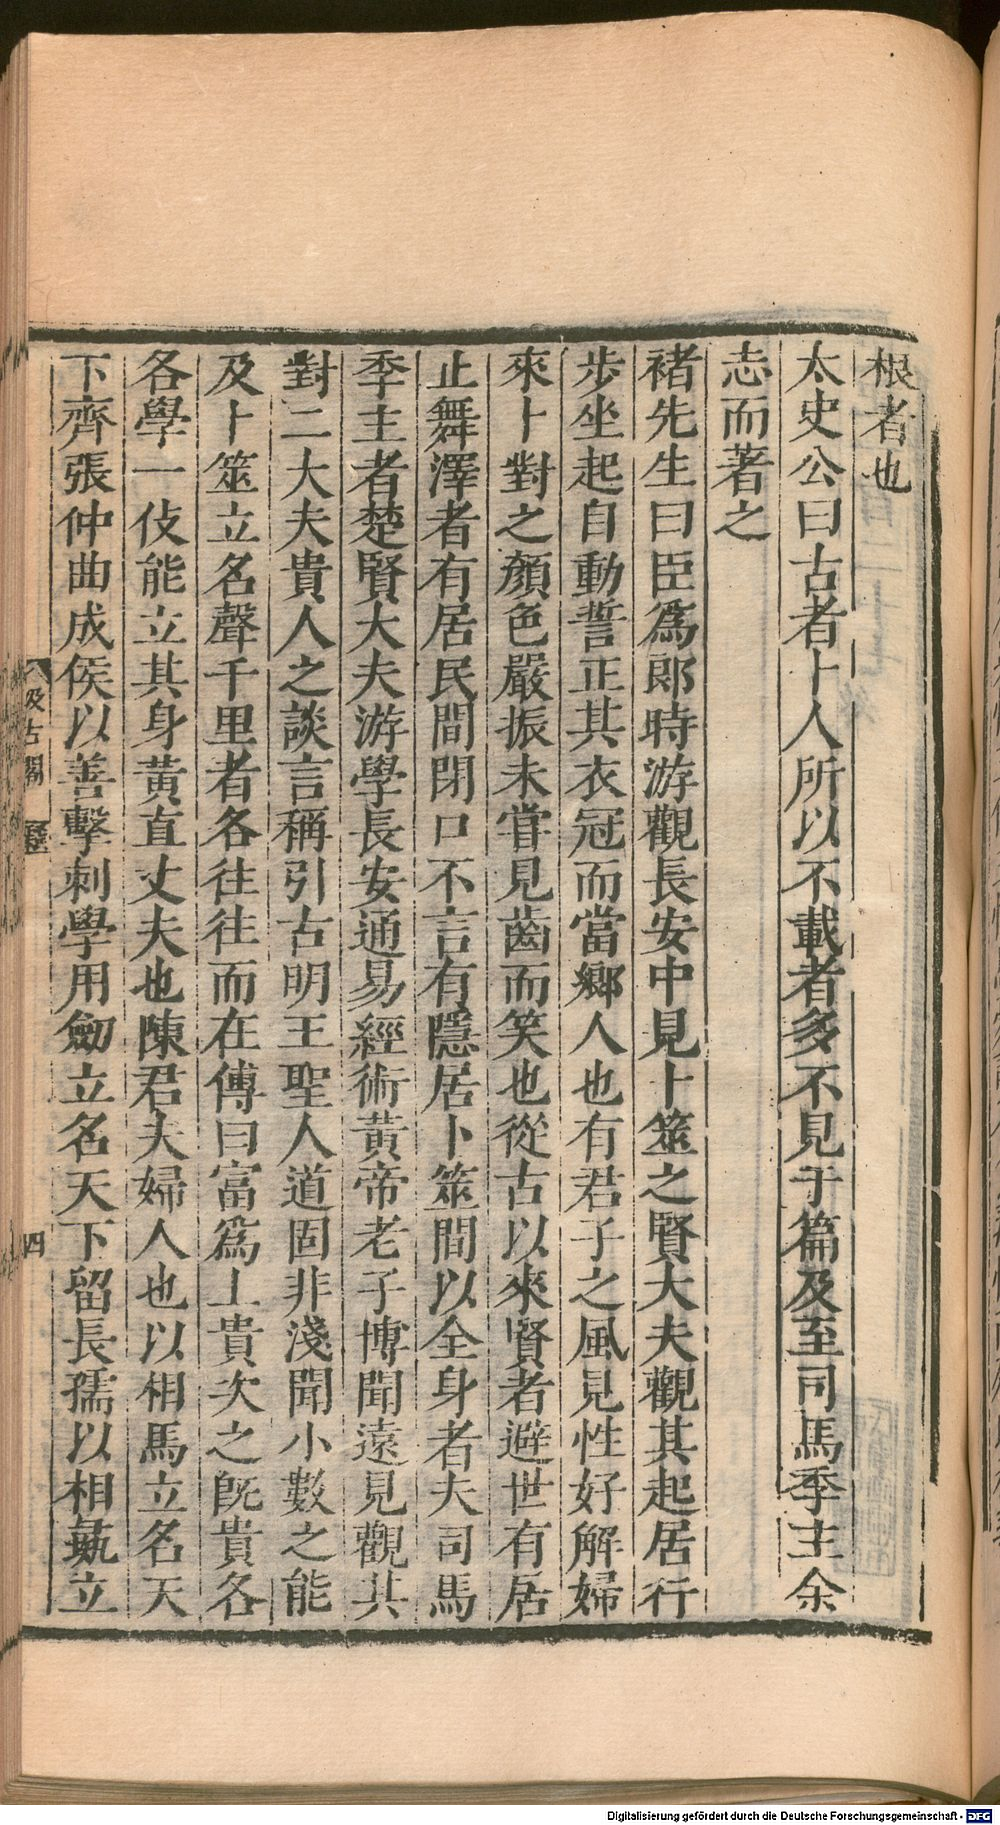 根者也
太史公曰古者卜人所以不載者多不見于篇及至司馬季主余
志而著之
褚先生曰臣爲郎時游觀長安中見卜筮之賢大夫觀其起居行
步坐起自動誓正其衣冠而當鄉人也有君子之風見性好解婦
來卜對之顏色嚴振未嘗見齒而笑也從古以來賢者避世有居
止舞澤者有居民間閉口不言有隱居卜筮間以全身者夫司馬
季主者楚賢大夫游學長安通易經術黃帝老子博聞遠見觀其
對二大夫貴人之談言稱引古明王聖人道固非淺聞小數之能
及卜筮立名聲千里者各往往而在傳曰富爲上貴次之旣貴各
各學一伎能立其身黃直丈夫也陳君夫婦人也以相馬立名天
下齊張仲曲成侯以善擊刺學用劒立名天下留長孺以相彘立
汲古閣
四
Digitalisierung gefördert durch die Deutsche Forschungsgemeinschaft - DFG